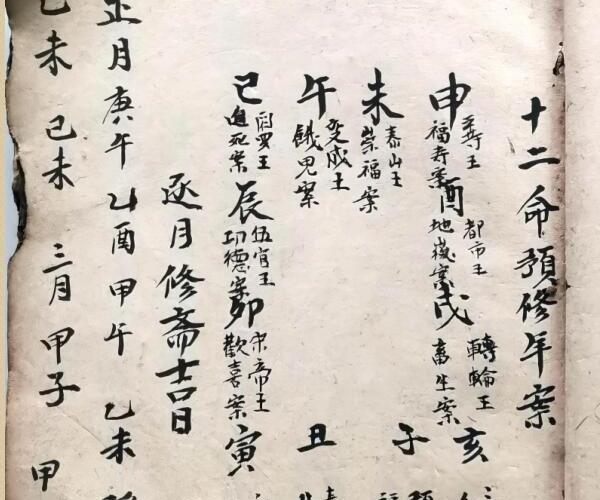 十二命預修年案
申 尊王 福寿案 酉 都市王 地嶽案 戌 轉輪王 畜生案 亥
未 泰山王 崇福案 子
午 変成王 餓鬼案 丑
巳 閻羅王 進死案 辰 伍官王 功德案 卯 宋帝王 歡喜案 寅
逐月修斋吉日
正月庚午 乙酉 甲午 乙未
己未 己未 三月甲子 甲